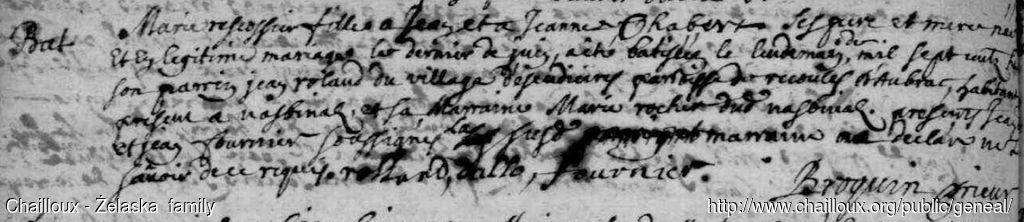 Bat Marie rescossier fille a Jean et a Jeanne Chabert ses pere et mere née
Et En legitime mariage le dernier de juin, a eté batisée le lendemain, mil sept cents
son parrin jean roland du village desendivires parroisse de recoules d'Aubrac, habitant
present a nasbinal, et sa marraine Marie rocher dud nasbinal. presents Jean
et jean fournier soussignes La susd marraine na declare ne
savoir de ce requis. rolland, dallo, fournier.
Broquin prieur
Chailloux - Żelaska family
http://www.chailloux.org/public/geneal/